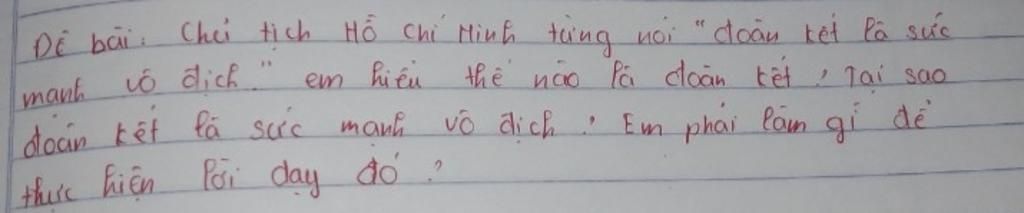 Đề bài: Chủ tịch Hồ Chí Minh từng nói "đoàn kết là sức
mạnh vô địch." em hiểu thế nào là đoàn kết, Tại sao
đoàn kết là sức mạnh vô địch. Em phải làm gì để
thực hiện lời dạy đó?